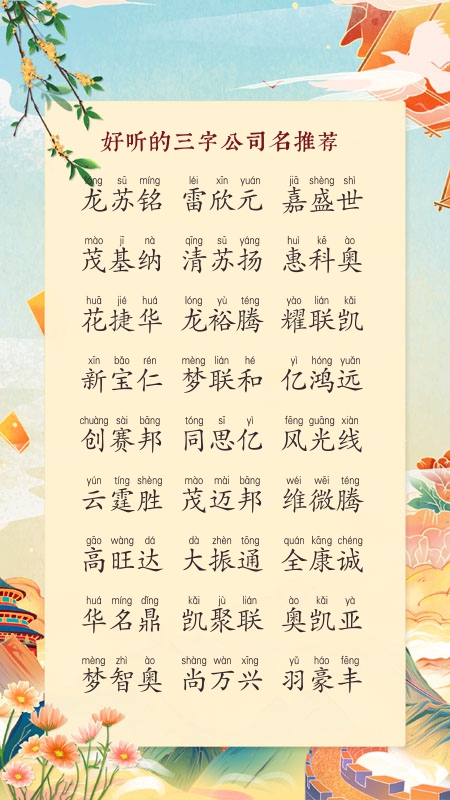 好听的三字公司名推荐
sū míng léi xīn yuán jiā shèng shì
龙苏铭 雷欣元 嘉盛世
mào jī nà qīng sū yáng huì kē ào
茂基纳 清苏扬 惠科奥
huā jié huá lóng yù téng yào lián kǎi
花捷华 龙裕腾 耀联凯
xīn bǎo rén mèng lián hé yì hóng yuǎn
新宝仁 梦联和 亿鸿远
chuàng sài bāng tóng sī yì fēng guāng xiàn
创赛邦 同思亿 风光线
yún tíng shèng mào mài bāng wéi wēi téng
云霆胜 茂迈邦 维微腾
gāo wàng dá dà zhèn tōng quán kāng chéng
高旺达 大振通 全康诚
huá míng dǐng kǎi jù lián ào kǎi yà
华名鼎 凯聚联 奥凯亚
mèng zhì ào shàng wàn xīng yǔ háo fēng
梦智奥 尚万兴 羽豪丰